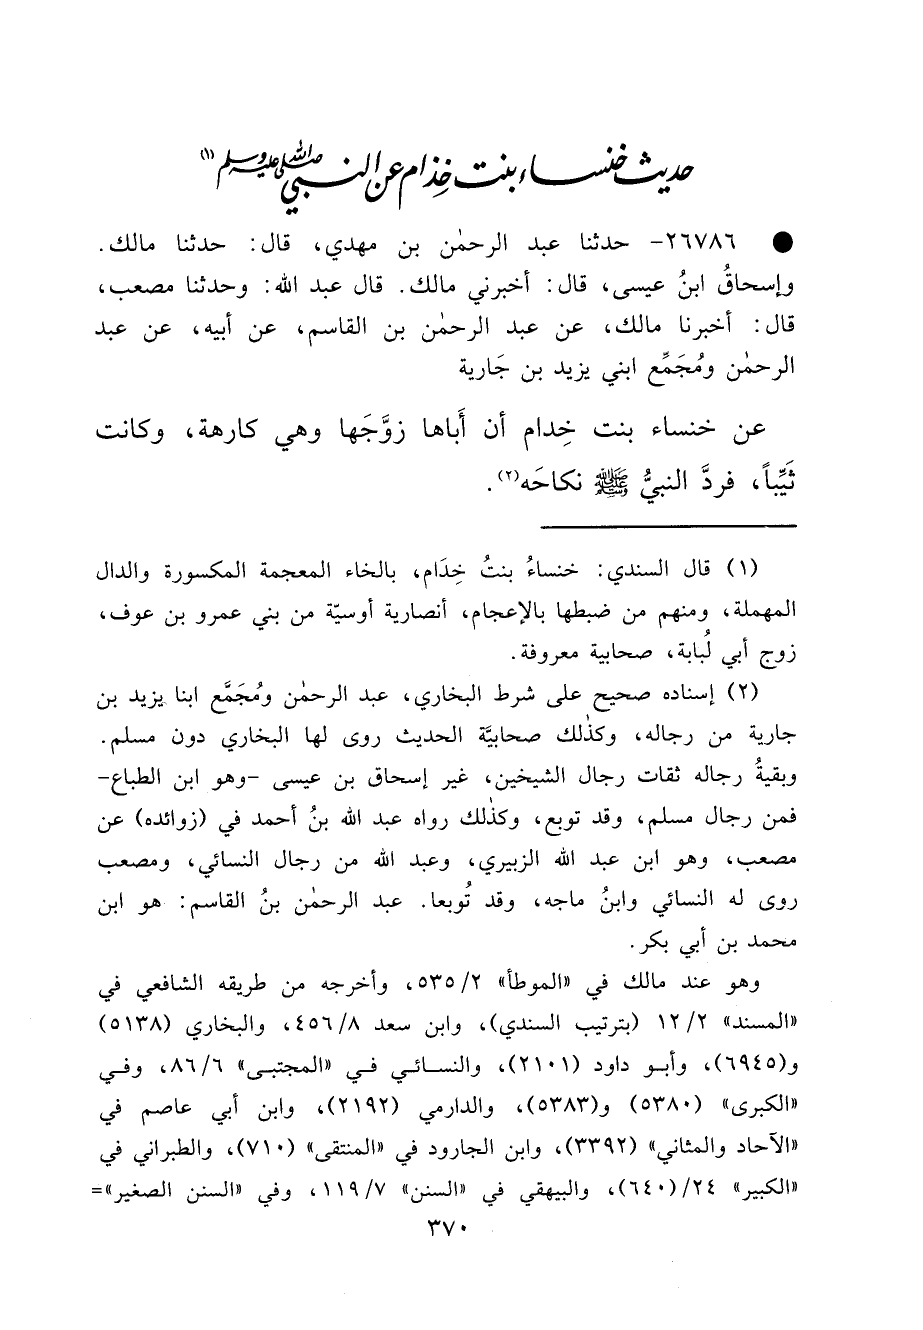 حديث خنساء بنت خِذام عن النبي صلى الله عليه وسلم (١)
● ٢٦٧٨٦- حدثنا عبد الرحمٰن بن مهدي، قال: حدثنا مالك.
وإسحاقُ ابنُ عيسى، قال: أخبرني مالك. قال عبد الله: وحدثنا مصعب،
قال: أخبرنا مالك، عن عبد الرحمٰن بن القاسم، عن أبيه، عن عبد
الرحمٰن ومُجَمِّع ابني يزيد بن جَارية
عن خنساء بنت خِدام أن أَباها زوَّجَها وهي كارهة، وكانت
ثَيِّباً، فردَّ النبيُّ ﷺ نكاحَه(٢).
(١) قال السندي: خنساءُ بنتُ خِدَام، بالخاء المعجمة المكسورة والدال
المهملة، ومنهم من ضبطها بالإعجام، أنصارية أوسيّة من بني عمرو بن عوف،
زوج أبي لُبابة، صحابية معروفة.
(٢) إسناده صحيح على شرط البخاري، عبد الرحمٰن ومُجَمَّع ابنا يزيد بن
جارية من رجاله، وكذٰلك صحابيَّة الحديث روى لها البخاري دون مسلم.
وبقيةُ رجاله ثقات رجال الشيخين، غير إسحاق بن عيسى -وهو ابن الطباع-
فمن رجال مسلم، وقد توبع، وكذٰلك رواه عبد الله بنُ أحمد في (زوائده) عن
مصعب، وهو ابن عبد الله الزبيري، وعبد الله من رجال النسائي، ومصعب
روى له النسائي وابنُ ماجه، وقد تُوبعا. عبد الرحمٰن بنُ القاسم: هو ابن
محمد بن أبي بكر.
وهو عند مالك في «الموطأ» ٥٣٥/٢، وأخرجه من طريقه الشافعي في
«المسند» ١٢/٢ (بترتيب السندي)، وابن سعد ٤٥٦/٨، والبخاري (٥١٣٨)
و(٦٩٤٥)، وأبو داود (٢١٠١)، والنسائي في «المجتبى» ٨٦/٦، وفي
«الكبرى» (٥٣٨٠) و(٥٣٨٣)، والدارمي (٢١٩٢)، وابن أبي عاصم في
«الآحاد والمثاني» (٣٣٩٢)، وابن الجارود في «المنتقى» (٧١٠)، والطبراني في
«الكبير» ٢٤/(٦٤٠)، والبيهقي في «السنن» ١١٩/٧، وفي «السنن الصغير»=
٣٧٠